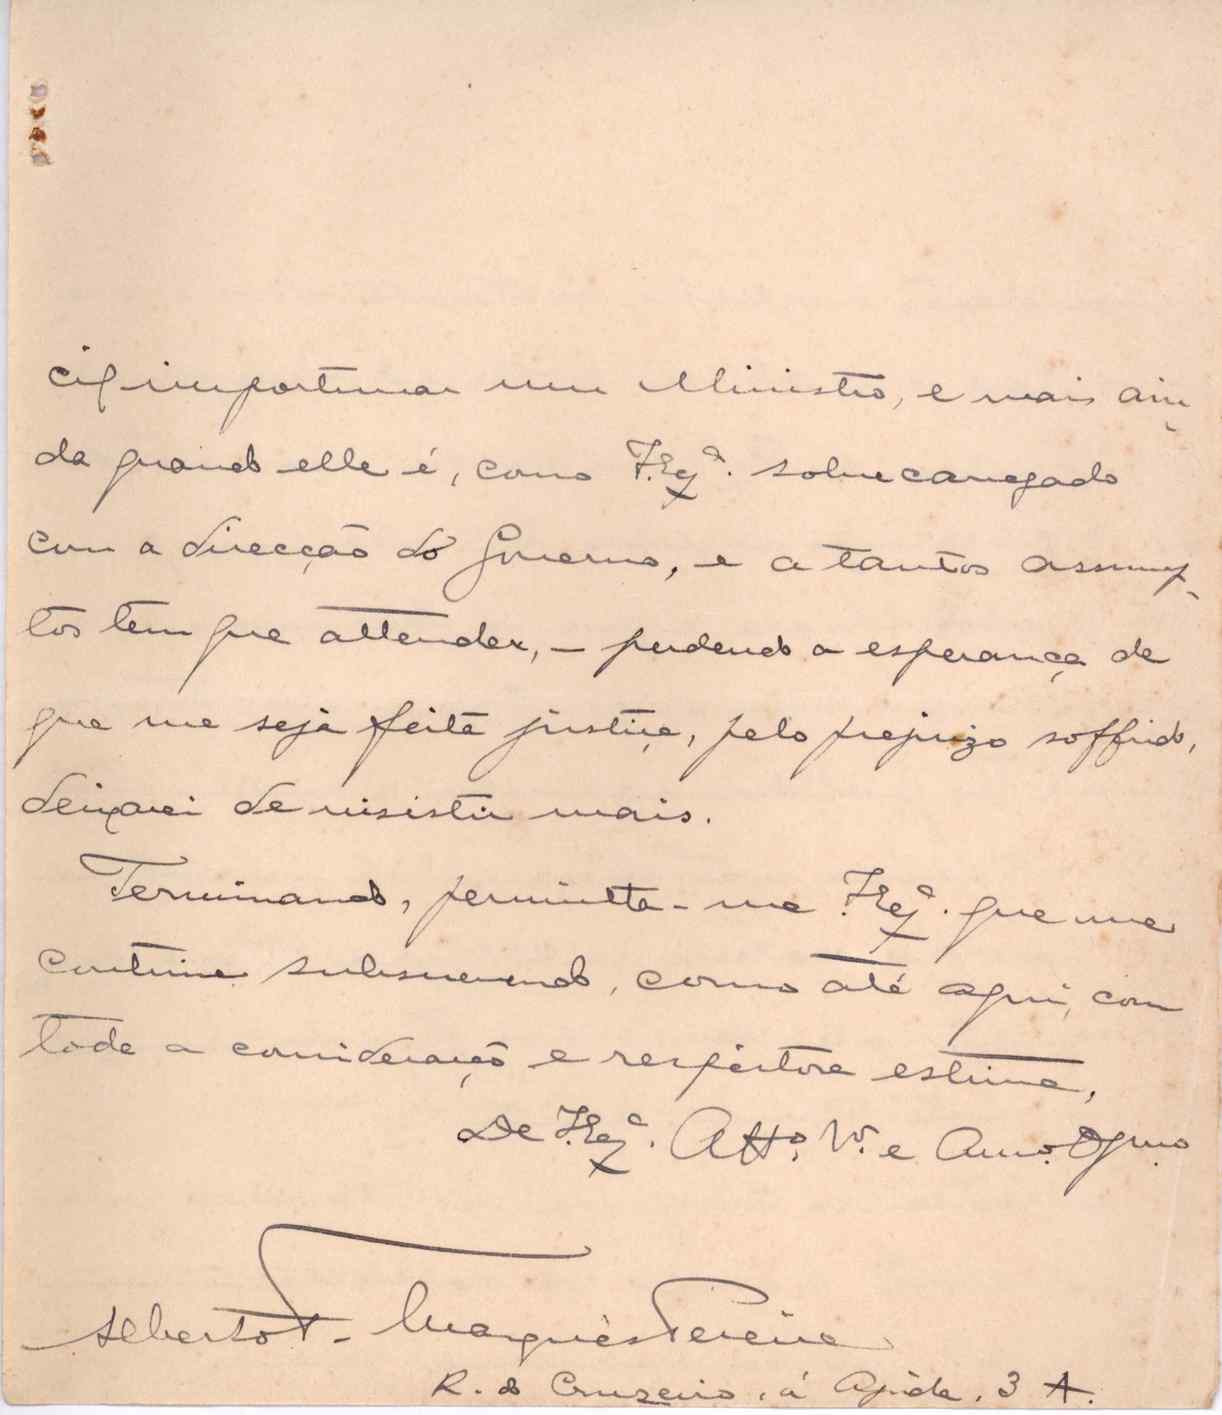 cil importunar um Ministro, e mais ain-
da quando elle é, como V. Exª. sobrecarregado
com a direcção do Governo, e a tantos assump-
tos tem que attender, - perdendo a esperança de
que me seja feita justiça, pelo prejuizo soffrido,
deixarei de insistir mais.
Terminando, permitta-me V. Exª. que me
continue subscrevendo, como até aqui, com
toda a consideração e respeitosa estima,
De V. Exª. Attº. Vº. e Amº. Obgmo
Alberto T. Marques Pereira
R. do Cruzeiro, á Ajuda, 3 A.